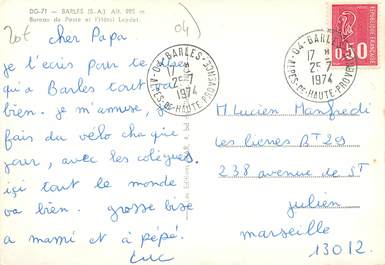 DG-71 - BARLES (B.A.) Alt. 995 m
Bureau de Poste et l'Hôtel Leydet.
20f
04)
cher Papa
je t'ecris pour te dire
qu'a Barles tout va
bien. je m'amuse, je
fais du vélo chaque
jour, avec les colègues.
içi tout le monde
va bien. grosse bise
a mami et à pépé.
Luc
04-BARLES
17 H
25-7
1974
ALPES-DE-HAUTE-PROVENCE
04-BARLES
17 H
25-7
1974
ALPES-DE-HAUTE-PROVENCE
REPUBLIQUE FRANÇAISE
0,50
M. Lucien Manfredi
les lierres Bt 29
238 avenue de St
julien
marseille
13012.